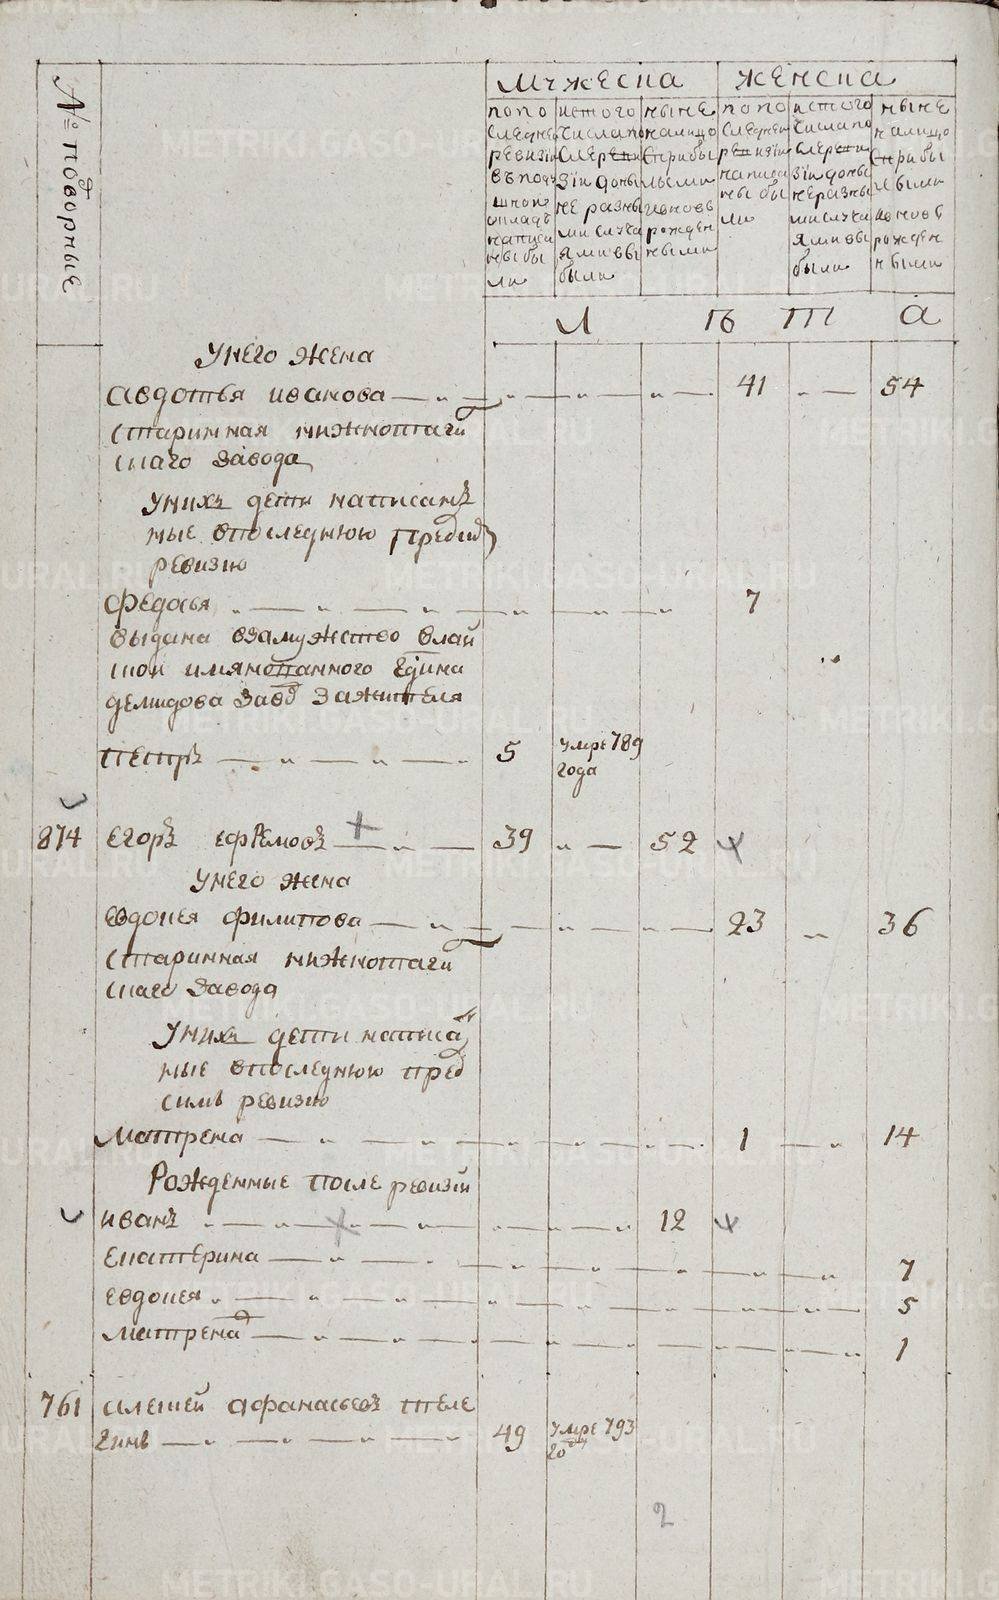 № подворные
мужеска
женска
по по
следней
ревизiи
въ подъ
шном
окладъ
написа
ны бы
ли
ис того
числа по
сле реви
зiи доны
не разны
ми случа
ями вы
были
ныне
налицо
с прибы
лыми
и вновь
рожден
ными
по по
следней
ревизiи
написа
ны бы
ли
ис того
числа по
сле реви
зiи доны
не разны
ми случа
ями вы
были
ныне
налицо
с прибы
лыми
и вновь
рожден
ными
Л Ѣ Т А
У него жена
авдотья иванова 41 54
старинная нижнотаги
лскаго завода
У нихъ дети написан
ные впоследнюю пред сию
ревизию
федосья 7
выдана взамужство в
имянованного
демидова завод за жителя
петръ 5 умре 789
года
874 егоръ ефремовъ 39 52
У него жена
евдокея филипова 23 36
старинная нижнотаги
лскаго завода
У нихъ дети написан
ные впоследнюю пред
симъ ревизию
матрена 1 14
Рожденные после ревизiи
иванъ 12
екатерина 7
евдокея 5
матрена 1
761 алексей афанасьевъ теле
гинъ 49 умре 793
году
2
METRIKI.GASO-URAL.RU